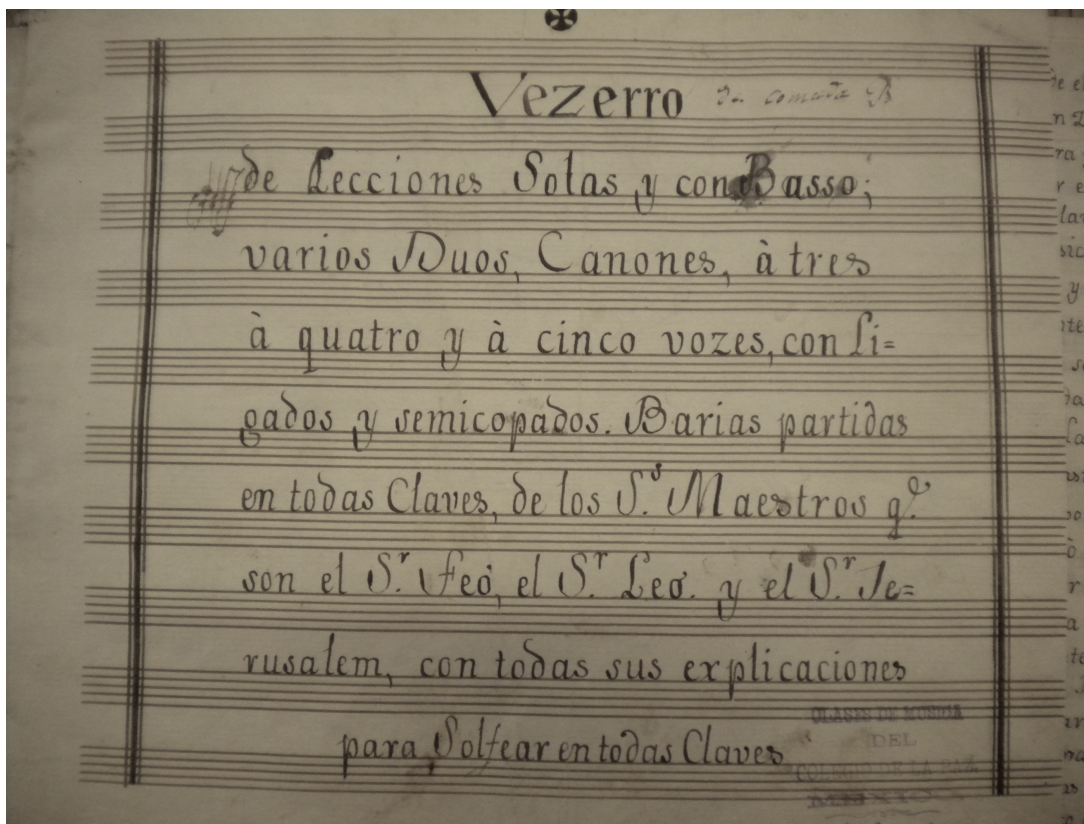 Vezerro
de Lecciones Solas y con Basso;
varios Duos, Canones, à tres
à quatro y à cinco vozes, con li=
gados y semicopados. Barias partidas
en todas Claves, de los S.ˢ Maestros q.ᵉ
son el S.ʳ Feó, el S.ʳ Leó. y el S.ʳ Je=
rusalem, con todas sus explicaciones
para Solfear en todas Claves
CLASES DE MUSICA
DEL
COLEGIO DE LA PAZ
MEXICO